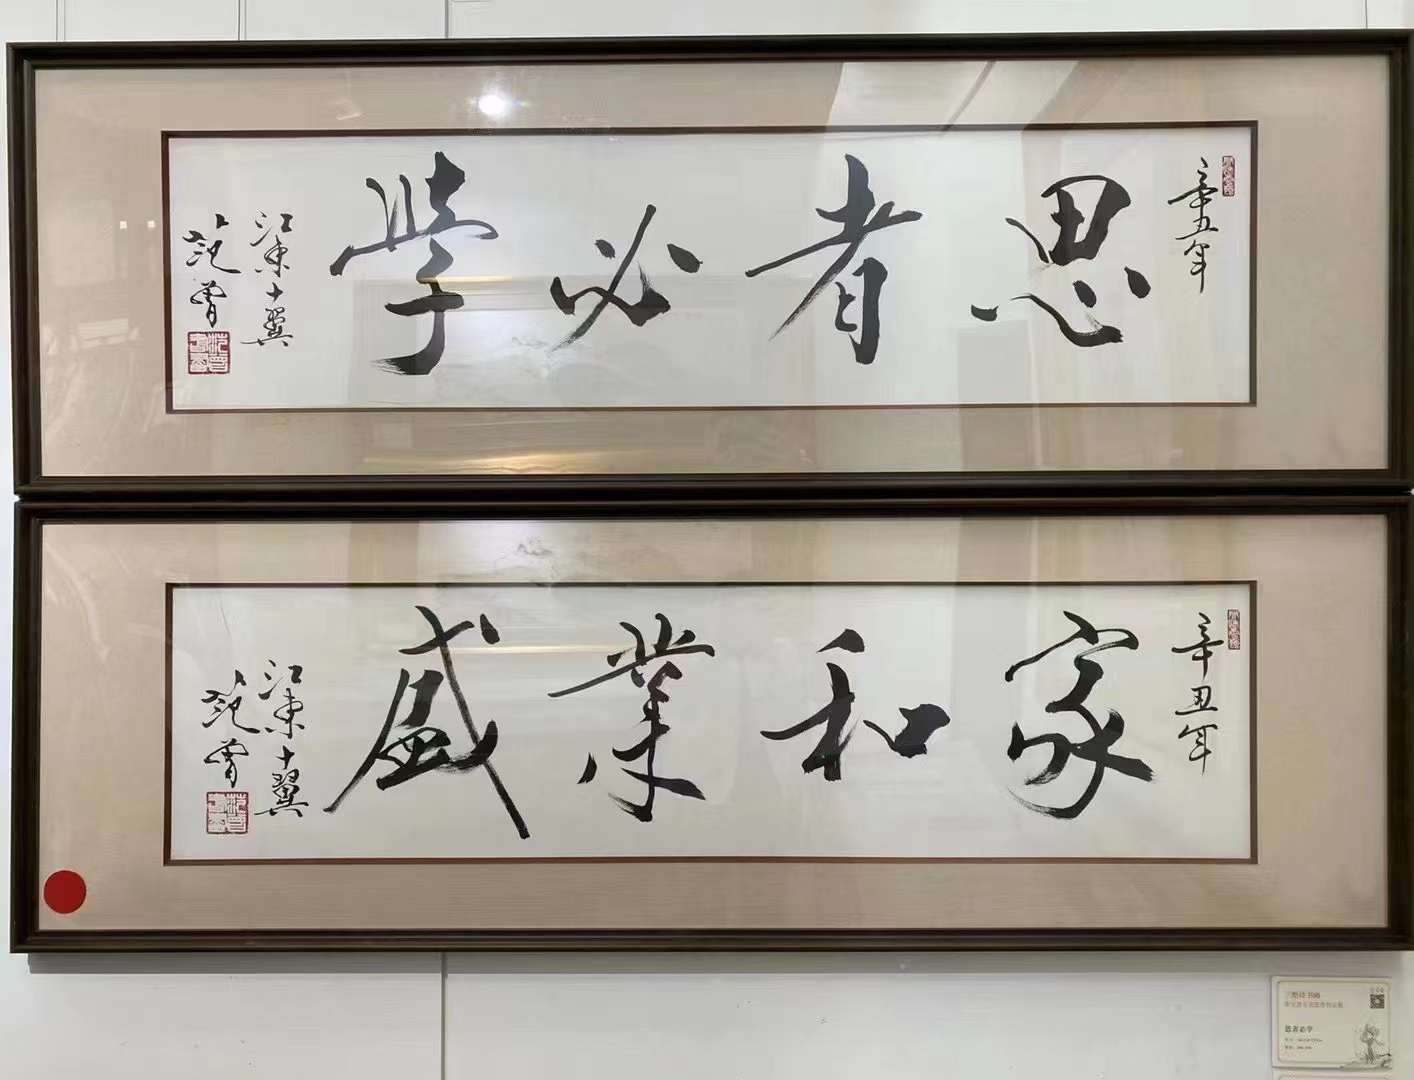 辛丑年
思者必學
江東十翼
范曾
辛丑年
家和業盛
江東十翼
范曾
思者必学